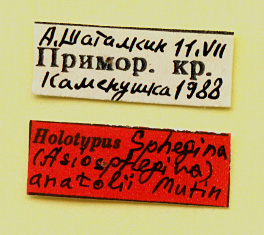 А.Шаталкин 11.VII
Примор. кр.
Каменушка 1988
Holotypus Sphegina
(Asiosphegina)
anatolii Mutin